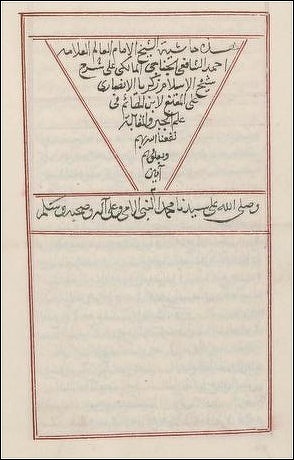 هذه حاشية الشيخ الامام العالم العلامه
احمد الشافعي المالكي على شرح
شيخ الاسلام زكريا الانصاري
على المقنع لابن الهائم في
علم الجبر والمقابلة
نفعنا الله بهم
وبعلومهم
آمين
م
وصلى الله على سيدنا محمد النبي الامي وعلى آله وصحبه وسلم